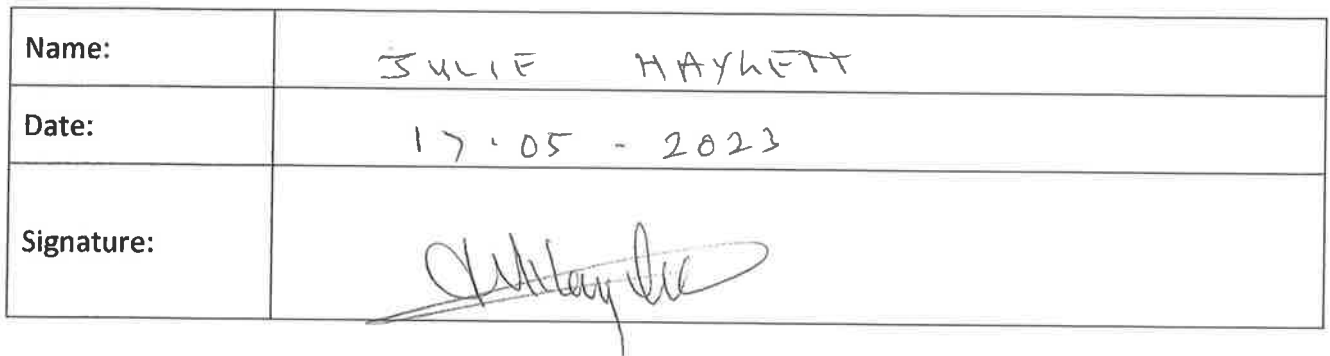 Name: JULIE HAYLETT
Date: 17.05-2023
Signature: